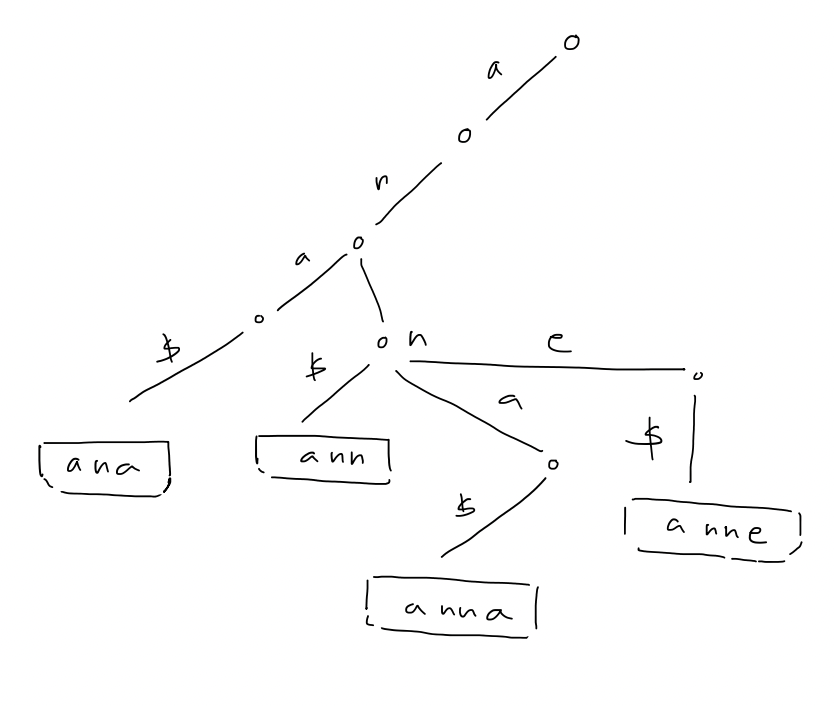 a
n
a
$
n
e
$
a
ana
ann
$
$
anne
anna